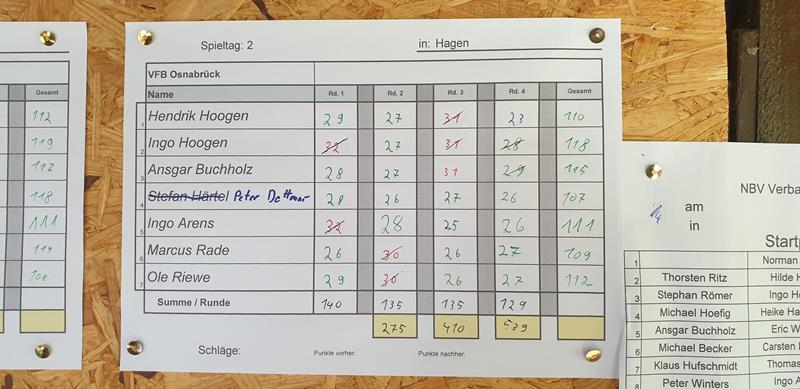 Gesamt
112
119
117
118
111
119
108
Spieltag: 2 in: Hagen
VFB Osnabrück
Name Rd. 1 Rd. 2 Rd. 3 Rd. 4 Gesamt
1 Hendrik Hoogen 29 27 31 23 110
2 Ingo Hoogen 32 27 31 28 118
3 Ansgar Buchholz 28 27 31 29 115
4 Stefan Härtel Peter Dettmar 28 26 27 26 107
5 Ingo Arens 32 28 25 26 111
6 Marcus Rade 26 30 26 27 109
7 Ole Riewe 29 30 26 27 112
Summe / Runde 140 135 135 129
275 410 539
Schläge: Punkte vorher: Punkte nachher:
NBV Verba
am
in
Startp
1 Norman
2 Thorsten Ritz Hilde H
3 Stephan Römer Ingo Ho
4 Michael Hoefig Heike Ha
5 Ansgar Buchholz Eric W
6 Michael Becker Carsten
7 Klaus Hufschmidt Thomas
8 Peter Winters Ingo A